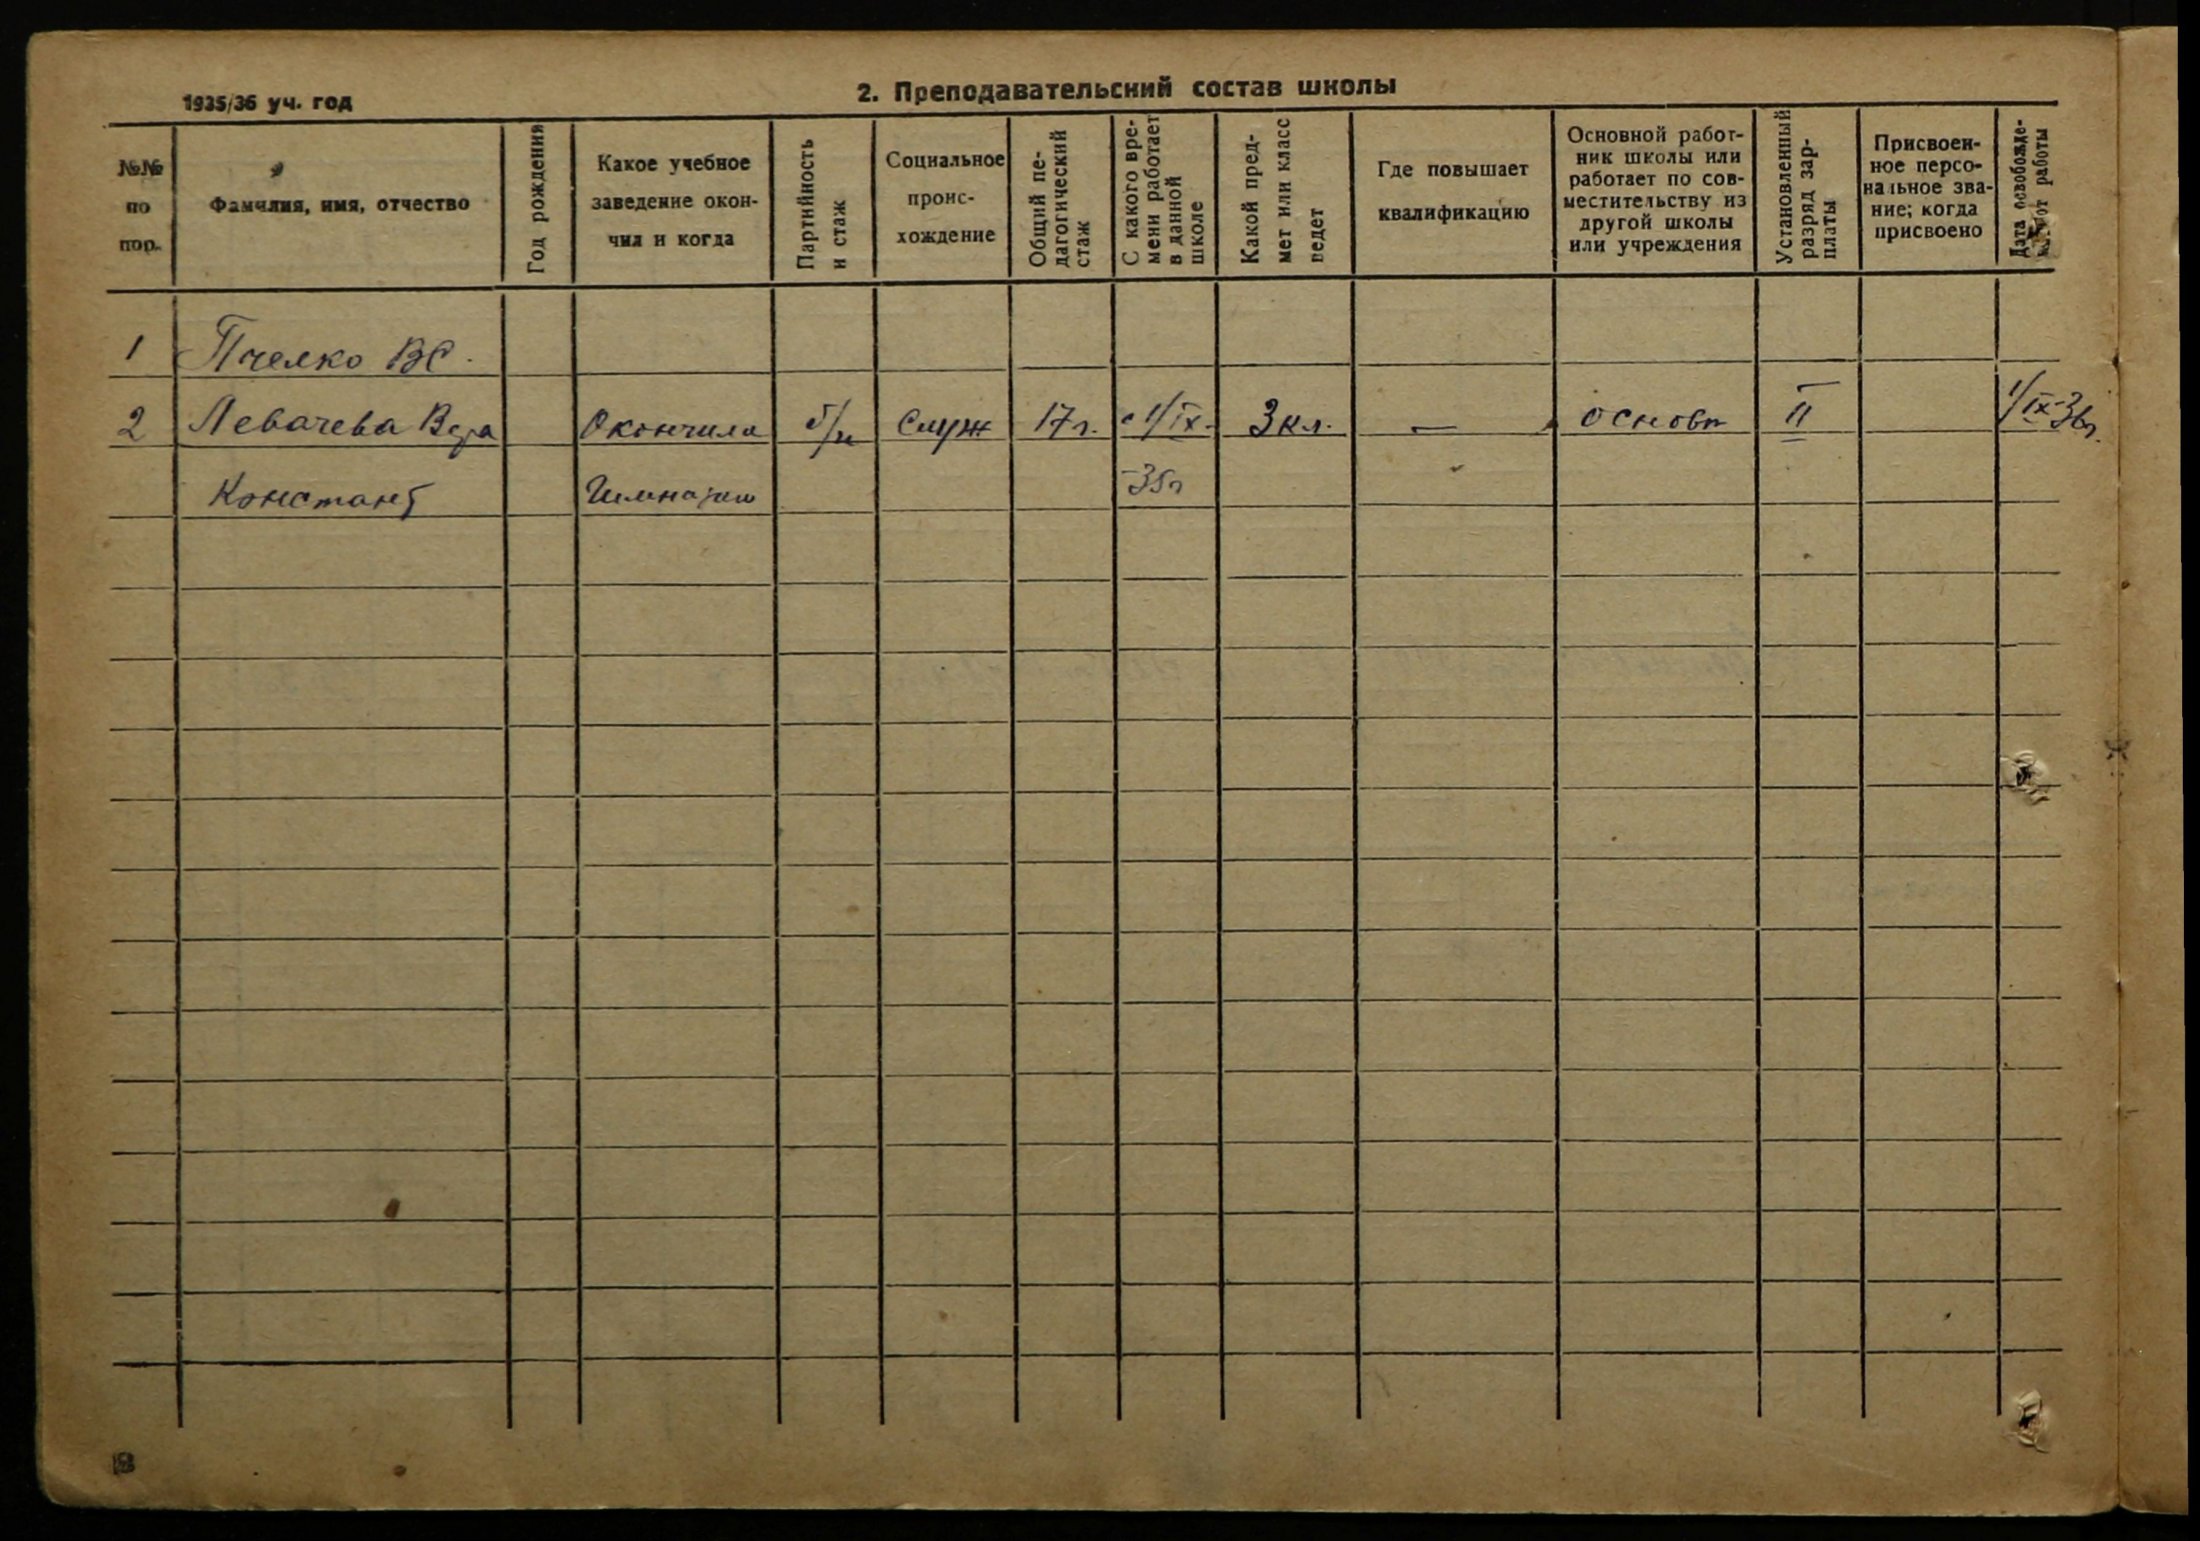 1935/36 уч. год
2. Преподавательский состав школы
№№
по
пор.
Фамилия, имя, отчество
Год рождения
Какое учебное
заведение окон-
чил и когда
Партийность
и стаж
Социальное
проис-
хождение
Общий пе-
дагогический
стаж
С какого вре-
мени работает
в данной
школе
Какой пред-
мет или класс
ведет
Где повышает
квалификацию
Основной работ-
ник школы или
работает по сов-
местительству из
другой школы
или учреждения
Установленный
разряд зар-
платы
Присвоен-
ное персо-
нальное зва-
ние; когда
присвоено
Дата освобожде-
от работы
1 Пчелко ВС.
2 Левачева Вера Окончила б/п служ 17 г. с 1/IX. 3 кл. — основн II 1/IX-36г.
Констант Гимназию -35г